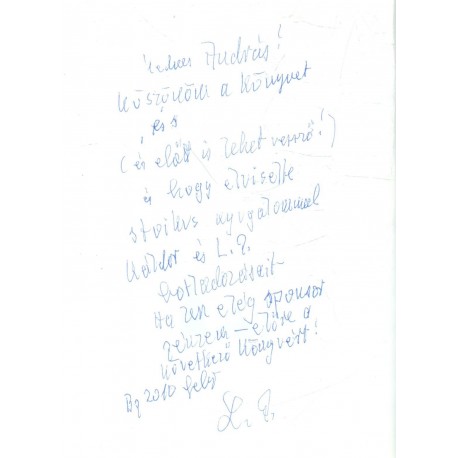 Kedves András!
Köszönöm a könyvet
, és
(és előtt is lehet vessző!)
és hogy elviselte
stoikus nyugalommal
Káldor és L. P.
botladozásait
Ha lesz elég sponsor
pénzem – előre a
következő könyvért!
Bp 2010 febr